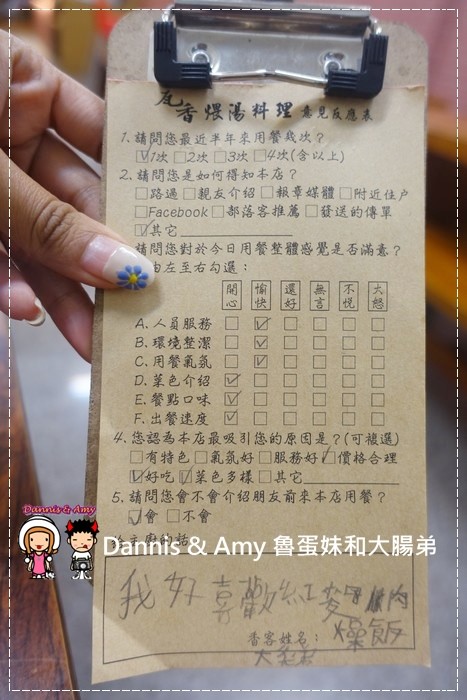 瓦香煨湯料理 意見反應表
1. 請問您最近半年來用餐幾次？
☑1次 □2次 □3次 □4次(含以上)
2. 請問您是如何得知本店？
□路過 □親友介紹 □報章媒體 □附近住戶
□Facebook □部落客推薦 □發送的傳單
☑其它
請問您對於今日用餐整體感覺是否滿意？
由左至右勾選：
開心 愉快 還好 無言 不悅 大怒
A. 人員服務 □ ☑ □ □ □ □
B. 環境整潔 □ ☑ □ □ □ □
C. 用餐氣氛 □ ☑ □ □ □ □
D. 菜色介紹 ☑ □ □ □ □ □
E. 餐點口味 ☑ □ □ □ □ □
F. 出餐速度 ☑ □ □ □ □ □
4. 您認為本店最吸引您的原因是？(可複選)
□有特色 □氣氛好 □服務好 ☑價格合理
☑好吃 ☑菜色多樣 □其它
5. 請問您會不會介紹朋友前來本店用餐？
☑會 □不會
Dannis & Amy
Dannis & Amy 魯蛋妹和大腸弟
我好喜歡紅麥
燥飯
香客姓名：